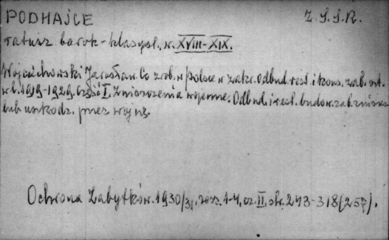 PODHAJCE Z.S.S.R.
ratusz barok-klasyst. w. XVIII-XIX.
Wojciechowski Jarosław. Co zrob. w Polsce w zakr. Odbud. rest. i kons. zab. szt.
w l. 1919-1929. Część I. Zniszczenia wojenne. Odbud. i rest. budow. zab. zniszcz.
lub uszkodz. przez wojnę.
Ochrona Zabytków. 1930/31, zesz. 1-4, cz. II, str. 273-318 (257).